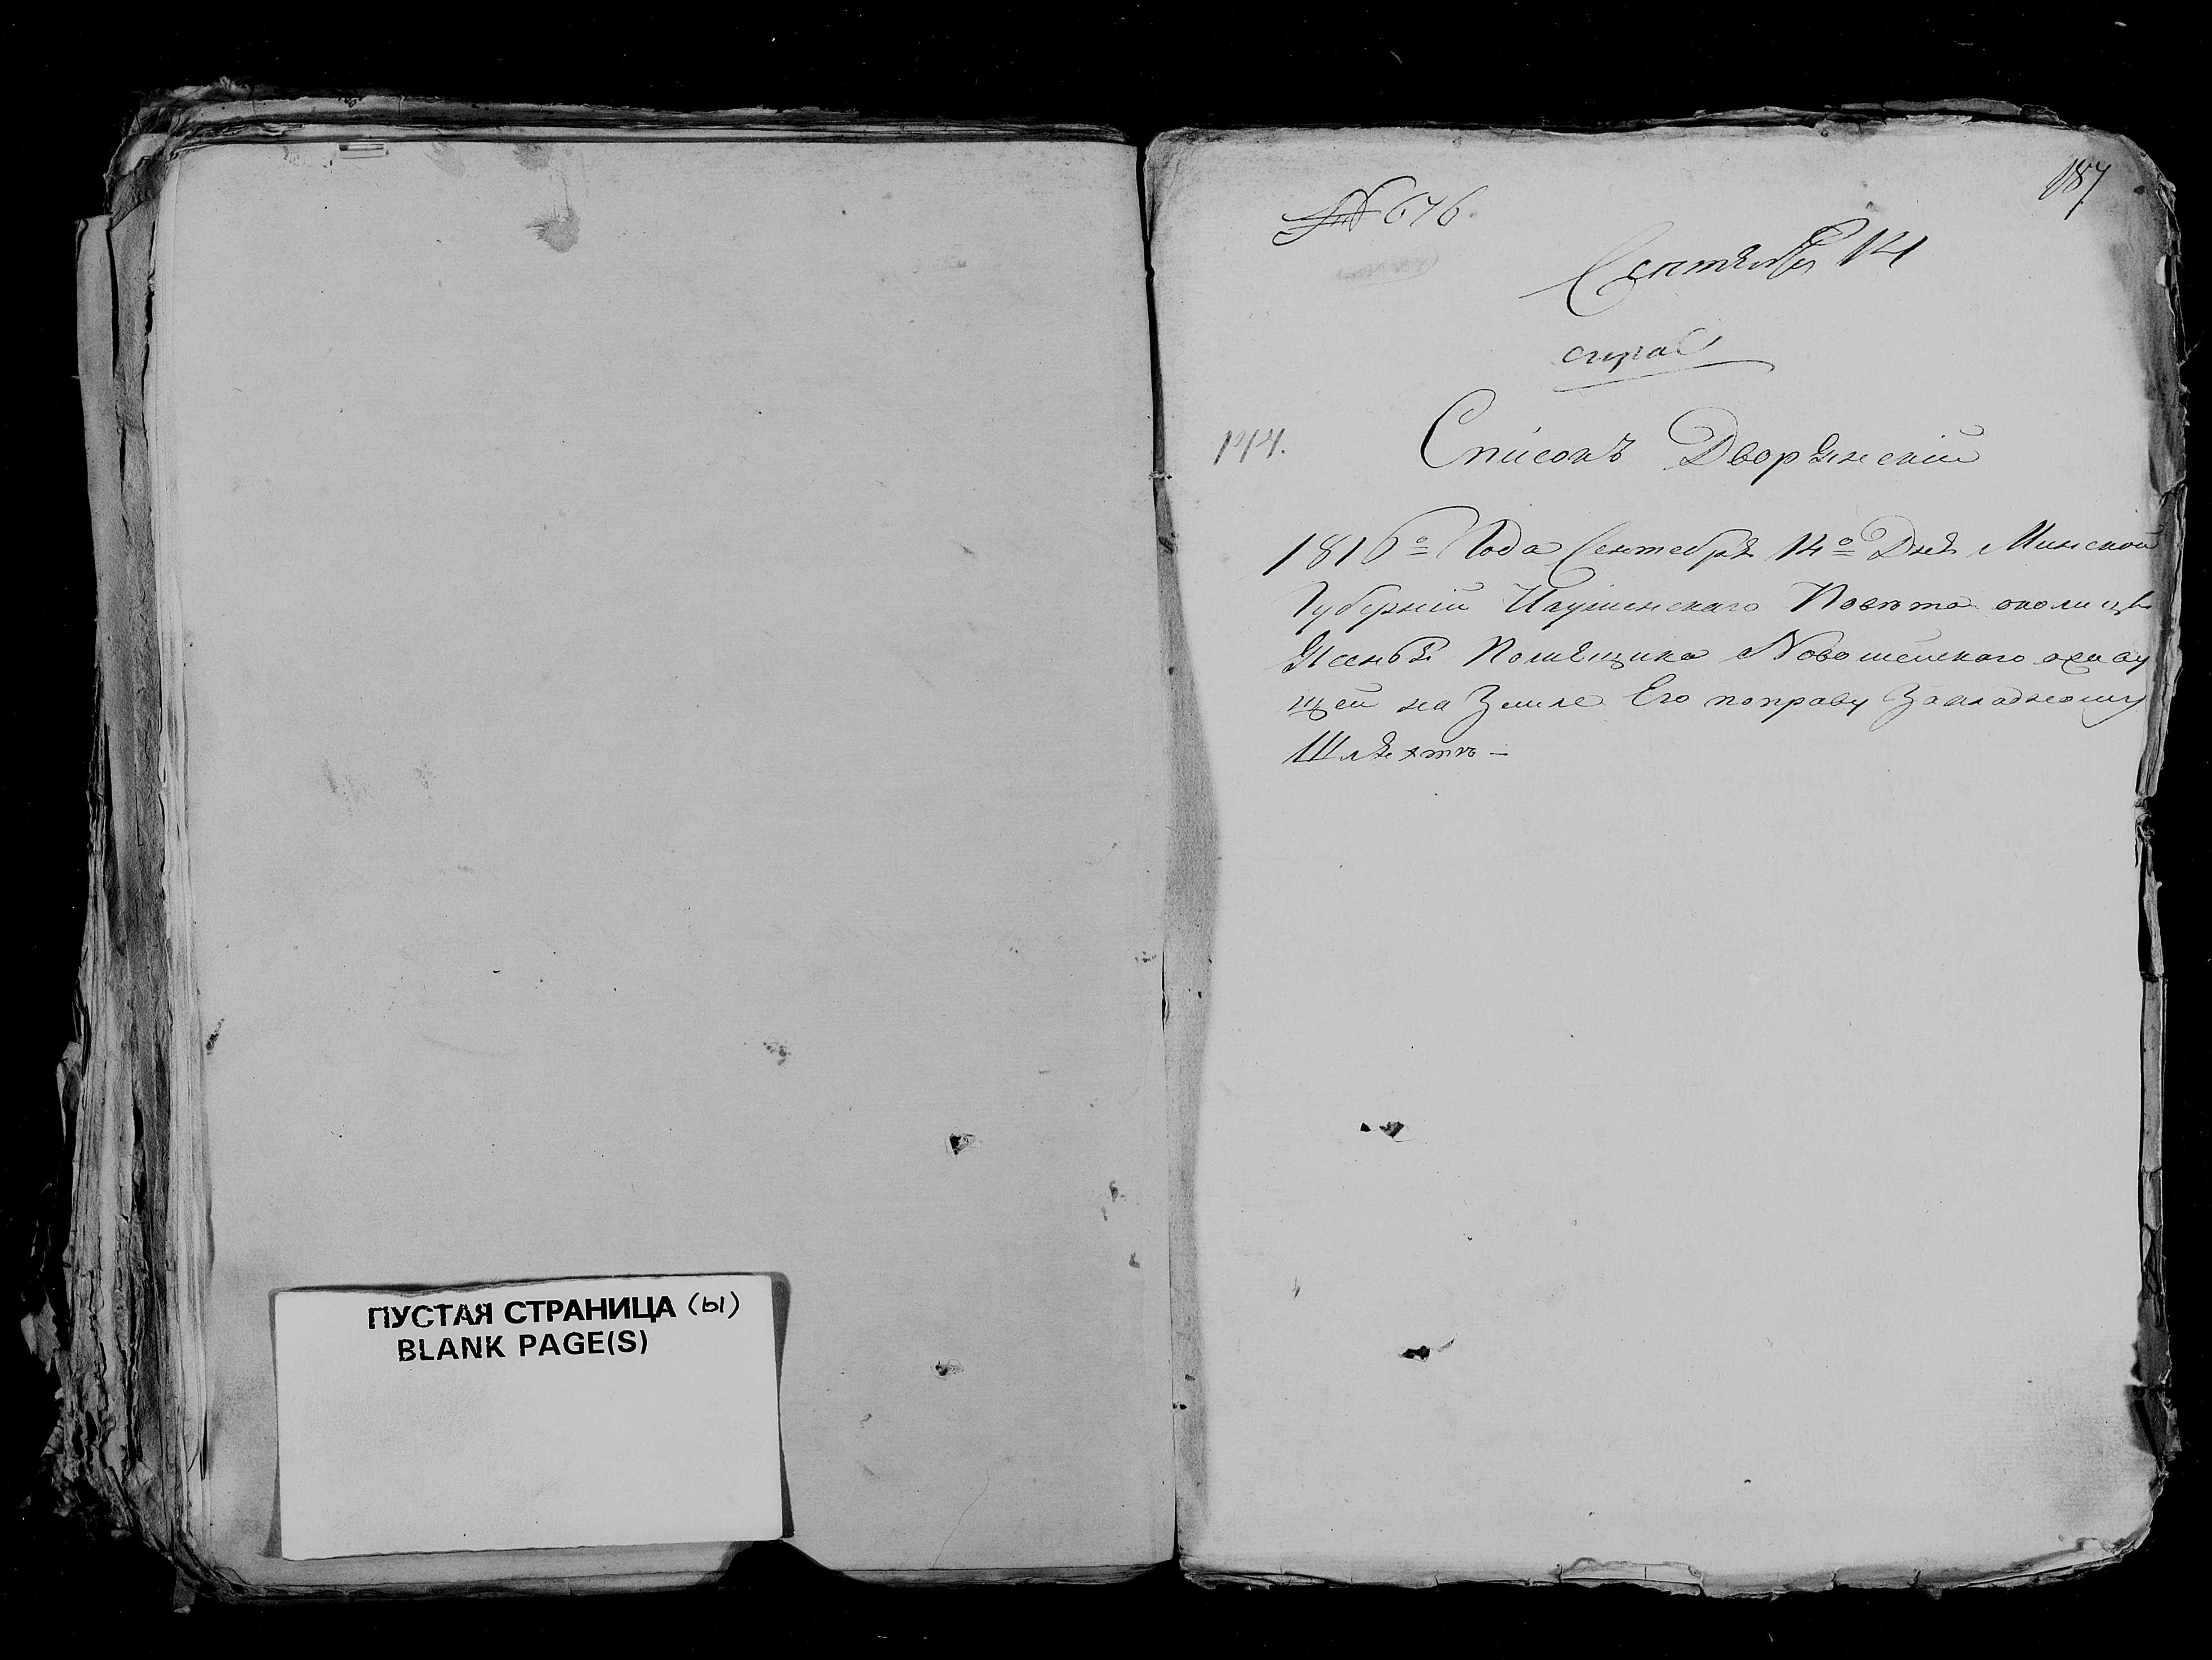 ПУСТАЯ СТРАНИЦА (Ы)
BLANK PAGE(S)
187
№ 676.
Сентября 14
144.
Списокъ Дворянскій
1816го Года Сентебря 14го Дня Минской
Губерніи Игуменскаго Повѣта околицы
Помещика
щей на Земле Его поправу Закладному
Шляхтѣ –